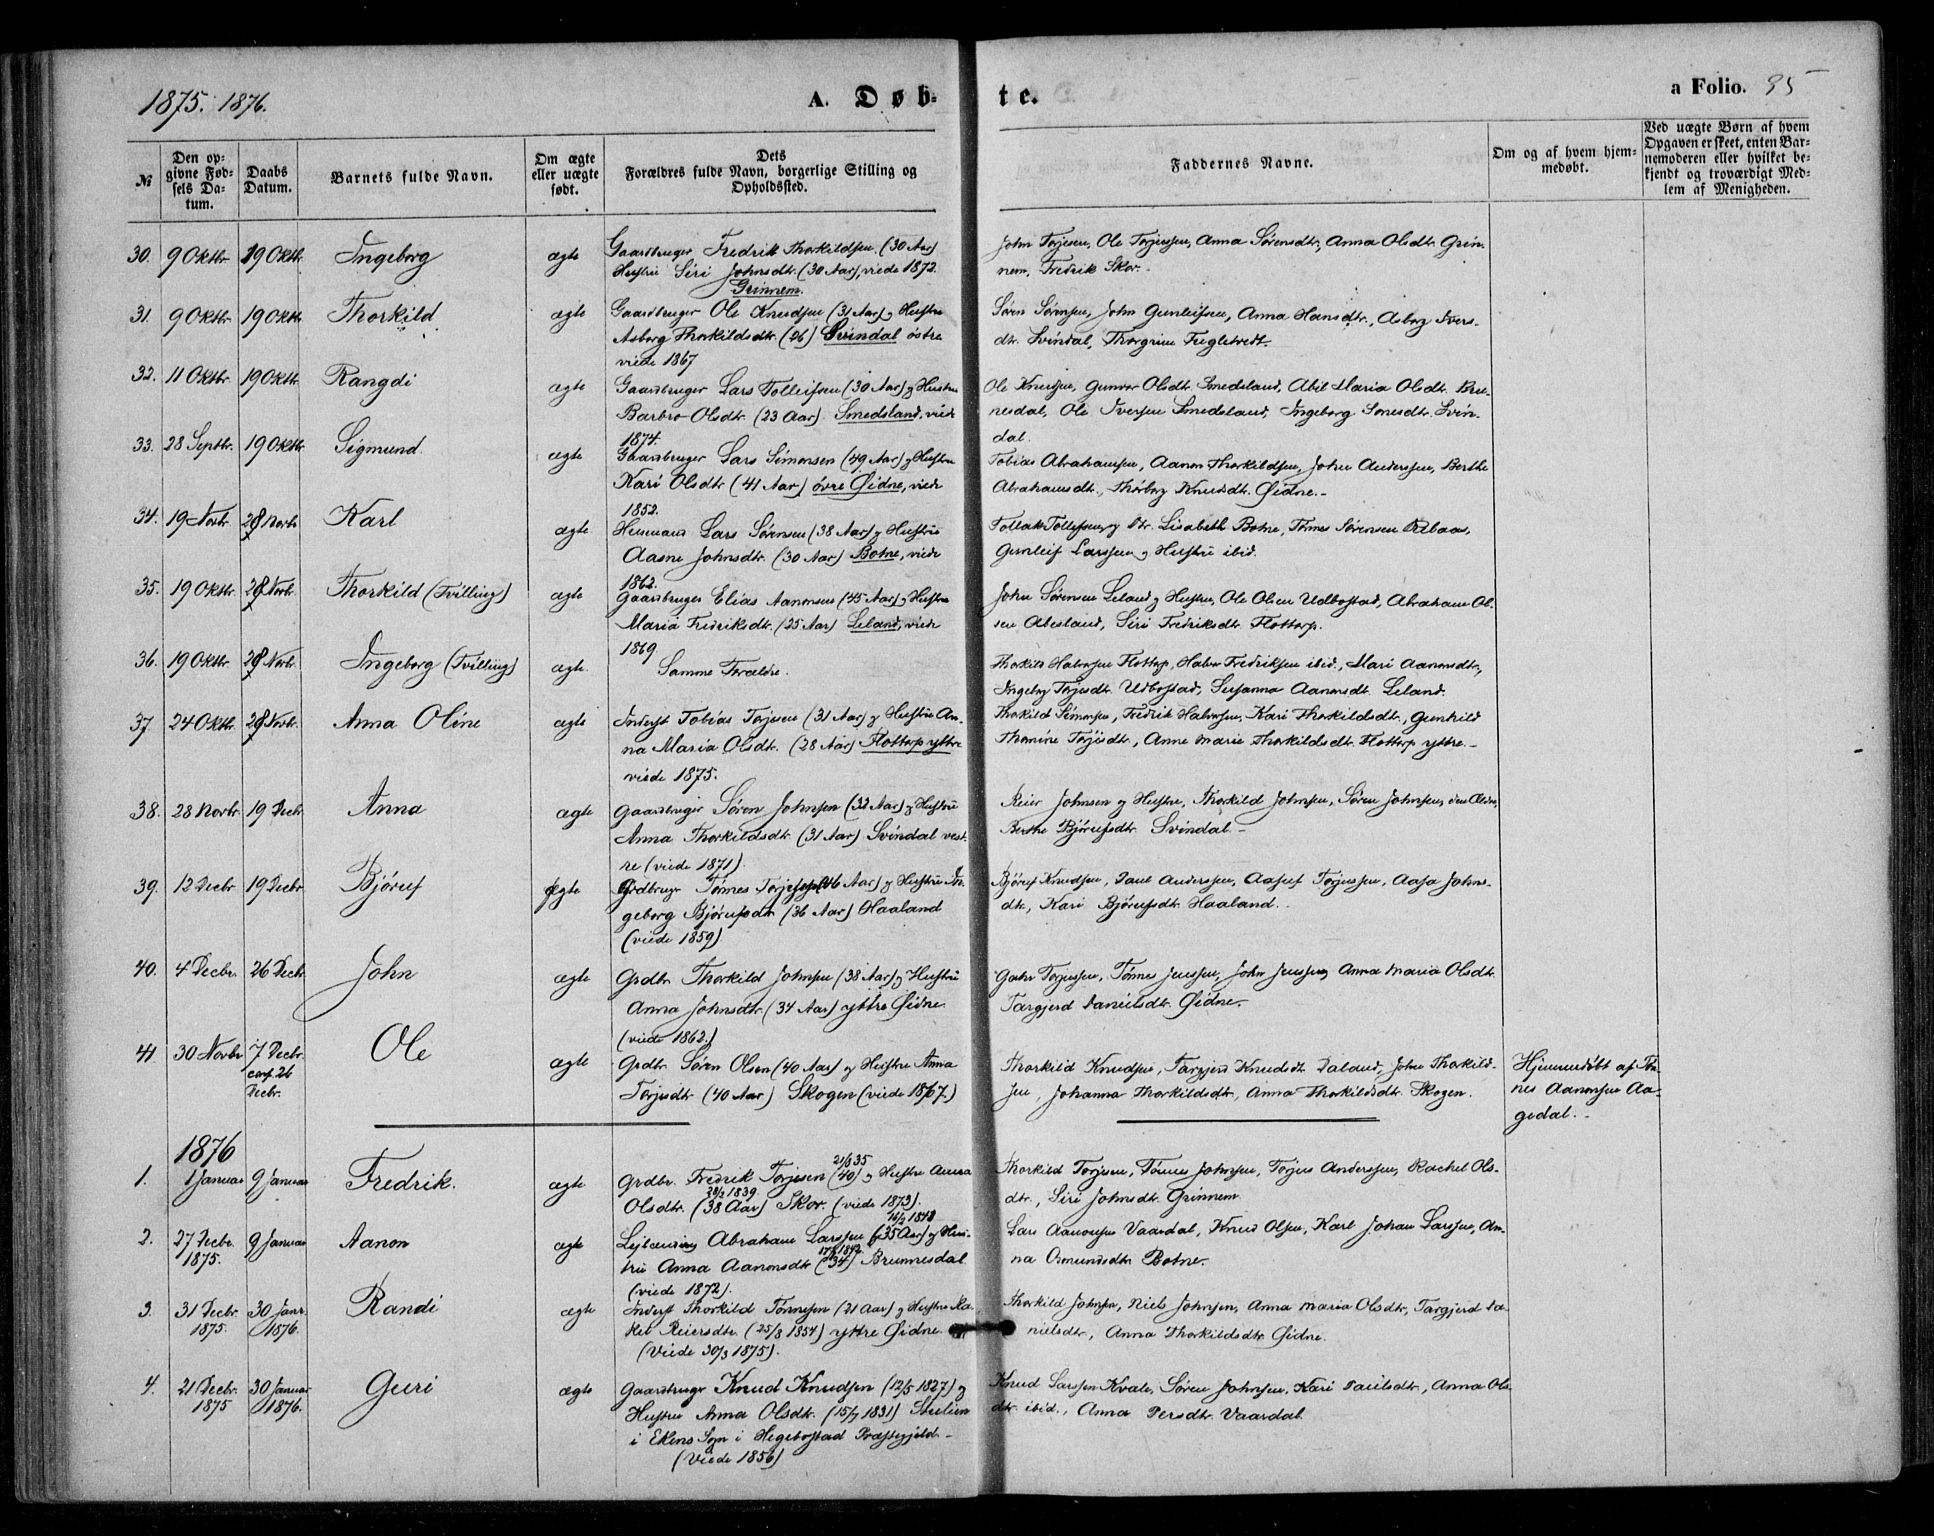 1875. 1876.
A. Døb-
te.
a Folio. 35
№
Den opgivne Fødsels Datum.
Daabs Datum.
Barnets fulde Navn.
Om ægte eller uægte født.
Dets Forældres fulde Navn, borgerlige Stilling og Opholdssted.
Faddernes Navne.
Om og af hvem hjemmedøbt.
Ved uægte Børn af hvem Opgaven er skeet, enten Barnemoderen eller hvilket bekjendt og troværdigt Medlem af Menigheden.
30. 9 Oktbr. 19 Oktbr. Ingeborg ægte
Gaardbruger Fredrik Thorkildsen (30 Aar)
Hustru Siri Johnsdtr. (30 Aar), viede 1872.
Grinnem.
John Torjesen, Ole Torjussen, Anna Sørensdtr., Anna Olsdtr. Grin-
nem, Fredrik Skor.
31. 9 Oktbr. 19 Oktbr. Thorkild ægte
Gaardbruger Ole Knudsen (31 Aar) og Hustru
Asborg Thorkildsdtr. (26) Svindal østre
viede 1867
Søren Sørensen, John Gunleifsen, Anna Hansdtr., Asborg Ivers-
dtr. Svindal, Thorgrim
32. 11 Oktbr. 19 Oktbr. Rangdi ægte
Gaardbruger Lars Tolleifsen (30 Aar) og Hustru
Barbro Olsdtr. (23 Aar) Smedsland, viede
1874.
Ole Knudsen, Gunvor Olsdtr. Smedsland, Abil Maria Olsdtr. Bru-
nesdal, Ole Iversen Smedsland, Ingeborg Svin-
dal.
33. 28 Septbr. 19 Oktbr. Sigmund. ægte
Gaardbruger Lars Simonsen (49 Aar) og Hustru
Kari Olsdtr (41 Aar) øvre Øidne, viede
1852.
Tobias Abrahamsen, Aanon Thorkildsen, John Anderssen, Berthe
Abrahamsdtr., Thorborg Knudsdtr. Øidne.-
34. 19 Novbr. 28 Novbr. Karl ægte
Husmand Lars Sørensen (38 Aar) og Hustru
Aasne Johnsdtr. (30 Aar) Botne, viede
1862.
Tollak Tollefsen og Dtr. Lisabeth Botne, Tønnes Sørensen
Gunleif Larssen og Hustru ibid.
35. 19 Oktbr. 28 Novbr. Thorkild (Tvilling) ægte
Gaardbruger Elias Aanonsen (45 Aar) og Hustru
Maria Fredriksdtr. (25 Aar) Leland, viede
1869
John Sørensen Leland og Hustru, Ole Olsen Udbostad, Abraham Ol-
sen Abesland, Siri Fredriksdtr. Flottorp.
36. 19 Oktbr. 28 Novbr. Ingeborg (Tvilling) ægte.
Samme Forældre.
Thorkild Halvorsen Flottorp, Halvor Fredriksen ibid., Mari Aanonsdtr.,
Ingeborg Torjesdtr. Udbostad, Susanna Aanonsdt. Leland.
37. 24 Oktbr. 28 Novbr. Anna Oline ægte
Inderst Tobias Torjesen (31 Aar) og Hustru An-
na Maria Olsdt. (28 Aar) Flottorp yttre
viede 1875.
Thorkild Simonsen, Fredrik Halvorsen, Kari Thorkildsdtr., Gunhild
Thomine Torjisdtr., Anne Marie Thorkildsdtr. Flottorp yttre.-
38. 28 Novbr. 19 Decbr. Anna ægte
Gaardbruger Søren Johnsen (32 Aar) og Hustru
Anna Thorkildsdtr. (31 Aar) Svindal vest-
re (viede 1871).
Reier Johnsen og Hustru, Thorkild Johnsen, Søren Johnsen, den Ældre,
Berthe Bjørufsdtr. Svindal -
39. 12 Decbr 19 Decbr. Bjøruf ægte
Grdbruger Tønnes Torjesen (46 Aar) og Hustru In-
geborg Bjørufsdtr. (36 Aar) Haaland
(viede 1859)
Bjøruf Knudsen, Danl Anderssen, Aasuf Torjussen, Aasa Johns-
dtr., Kari Bjørufsdtr. Haaland.
40. 4 Decbr. 26 Decbr. John ægte
Grdbr. Thorkild Johnsen (38 Aar) og Hustru
Anna Johnsdtr. (34 Aar) yttre Øidne.
(viede 1862.)
Torjussen, Tønnes Jenssen, John Jenssen, Anna Maria Olsdt.
Targjerd Danielsdtr. Øidne.-
41 30 Novbr 7 Decbr. conf. 26 Decbr. Ole ægte
Grdbr. Søren Olsen (40 Aar) og Hustru Anna
Torjesdtr. (40 Aar) Skogen (viede 1867.)
Thorkild Knudsen, Targjerd Knudsdt. Daland, John Thorkild-
sen, Johanna Thorkildsdtr., Anna Thorkildsdtr. Skogen.
Hjemmedøbt af Tøn-
nes Aanonsen Aa-
gedal.-
1876
1. 1 Januar 9 Januar Fredrik. ægte
21/8 35
Grdbr. Fredrik Torjesen (40) og Hustru Anna
28/2 1839
Olsdtr. (38 Aar) Skor. (viede 1873).
Thorkild Torjesen, Tønnes Johnsen, Torjus Anderssen, Rachel Ols-
dtr., Siri Johnsdtr. Grinnem
2. 27 Decbr. 1875. 9 Januar Aanon ægte
Leilænding Abraham Larssen (35 Aar) og Hus-
tru Anna Aanonsdtr (34) Brunnesdal
(viede 1872).
Lars Aanonsen Vaardal, Knud Olsen, Karl Johan Larssen, An-
na Osmundsdtr Botne.
3. 31 Decbr. 1875. 30 Janr. 1876. Randi ægte
Inderst Thorkild Tønnesen (21 Aar) og Hustru Ra-
kel Reiersdtr. (25/8 1854) yttre Øidne.
(Viede 30/3 1875).
Thorkild Johnsen, Niels Johnsen, Anna Maria Olsdtr., Targjerd Da-
nielsdtr., Anna Thorkildsdtr Øidne.
4. 21 Decbr. 1875 30 Januar 1876. Guri ægte
Gaardbruger Knud Knudsen (12/5 1827) og
Hustru Anna Olsdtr. (15/7 1831)
i Ekens Sogn i Hegebostad Præstegjeld.-
(Viede 1856)
Knud Larssen Kvale, Søren Johnsen, Kari Paulsdtr., Anna Ols-
dtr. ibid., Anna Persdtr. Vaardal.